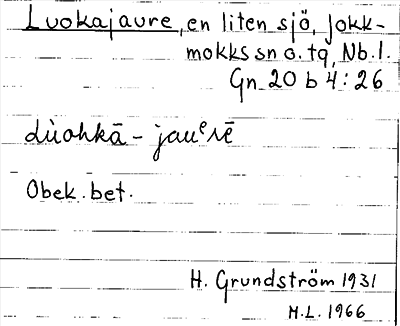 Luokajaure, en liten sjö, Jokk-
mokks sn o. tg, Nb. l.
Gn 20 b 4:26
dùohkā - jauᵉrē
Obek. bet.
H. Grundström 1931
H.L. 1966